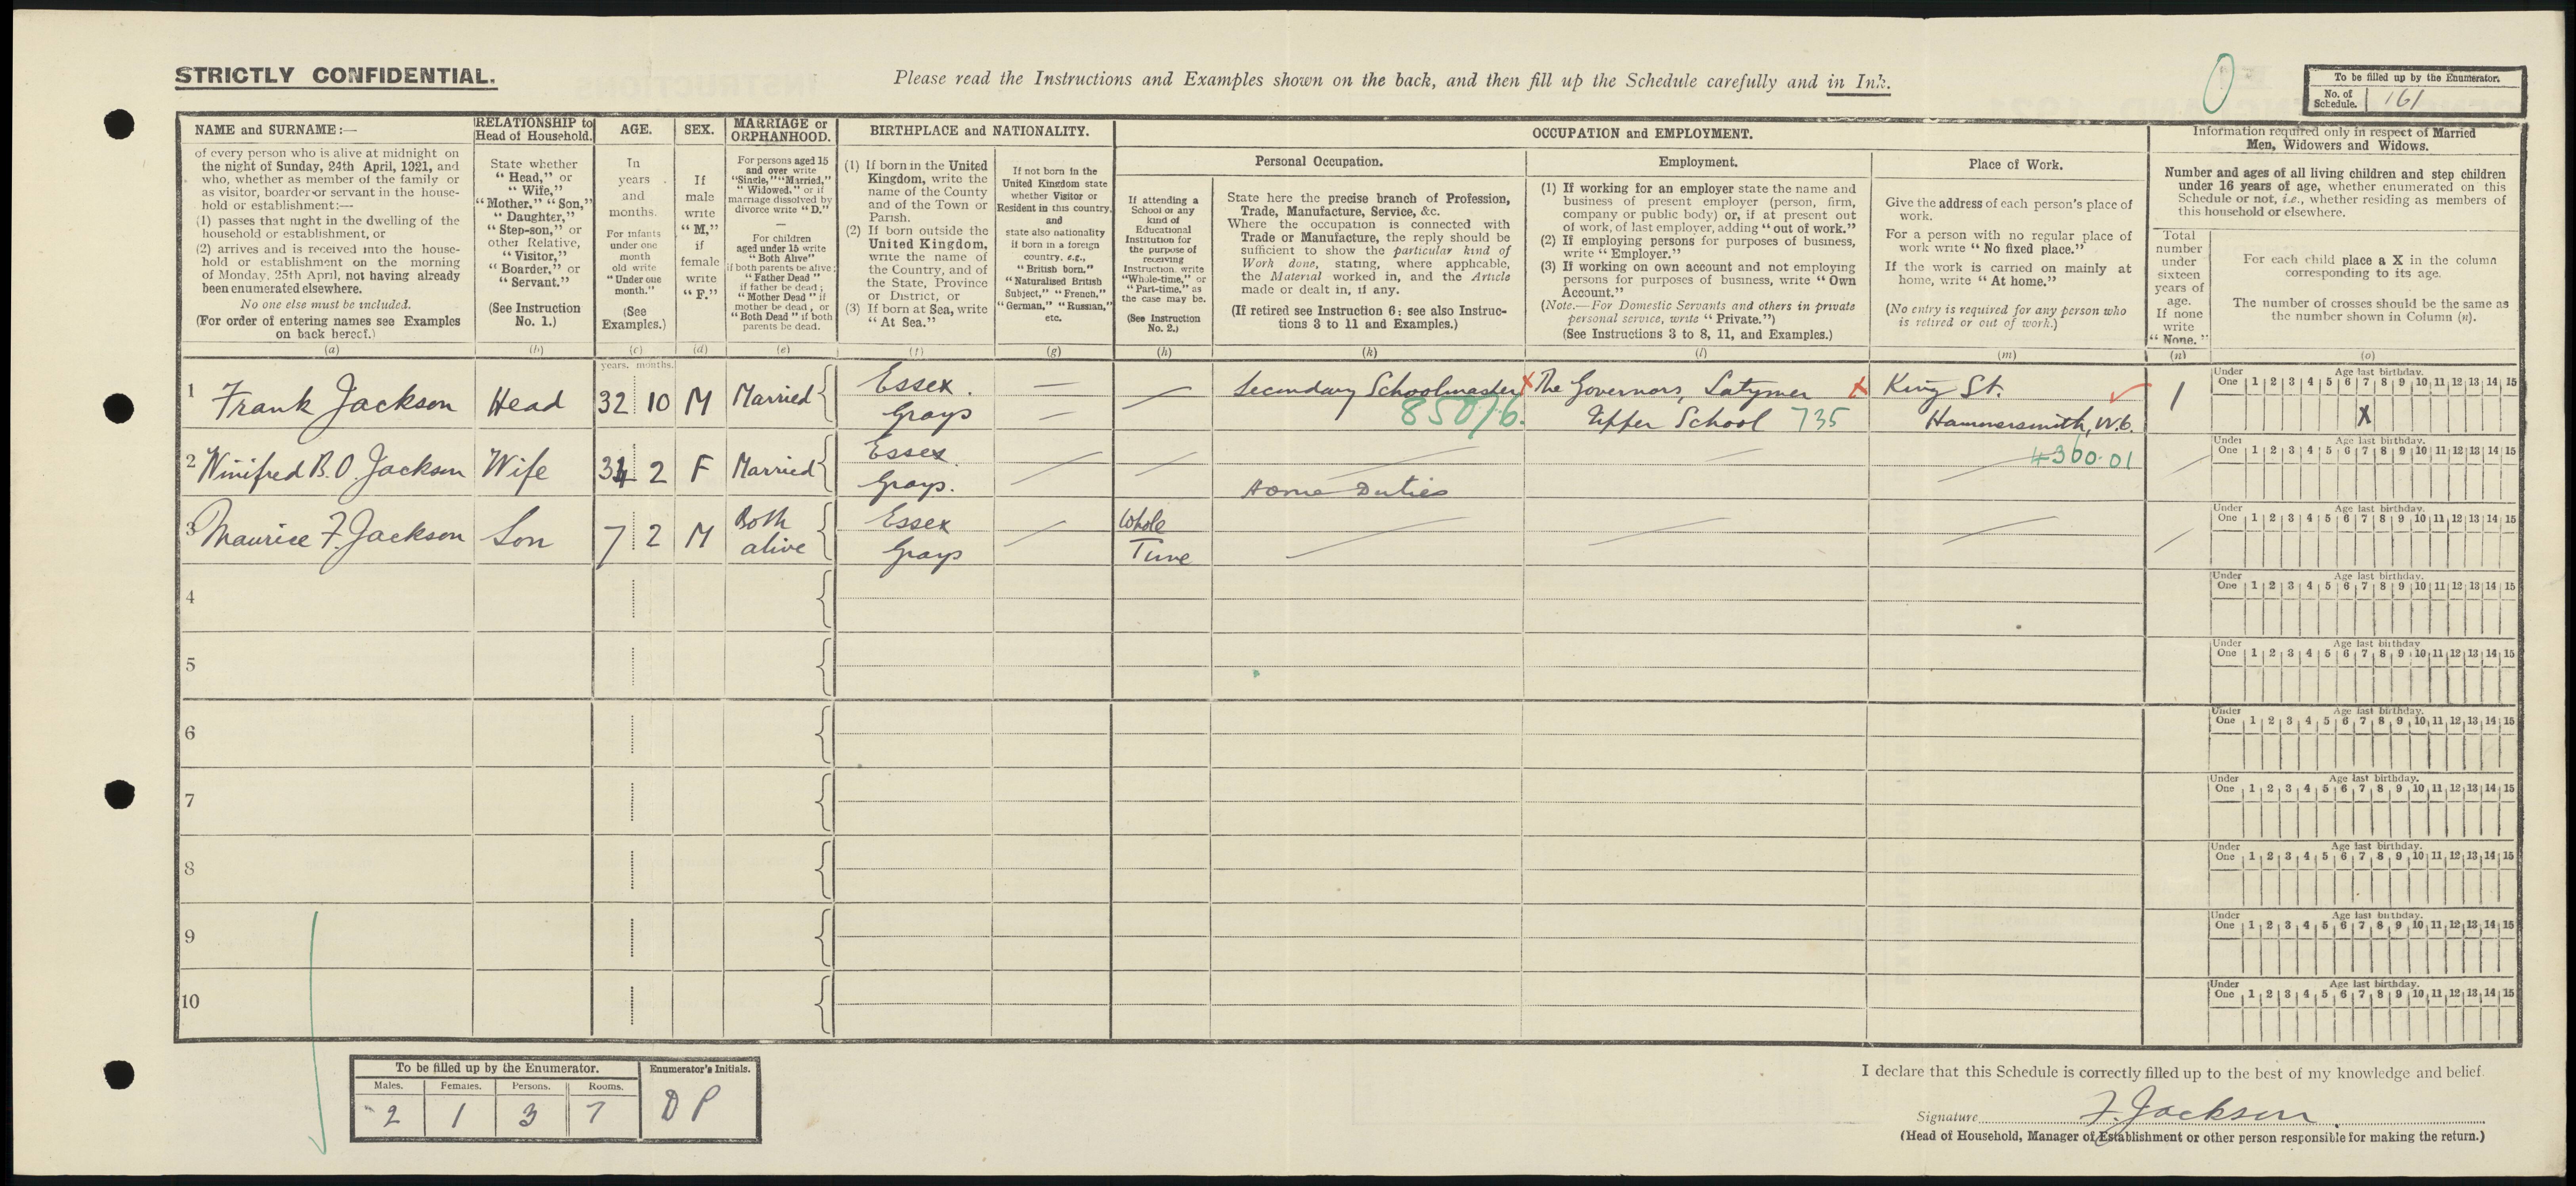 STRICTLY CONFIDENTIAL.
Please read the Instructions and Examples shown on the back, and then fill up the Schedule carefully and in Ink.
To be filled up by the Enumerator.
No. of Schedule. 161
NAME and SURNAME:—
of every person who is alive at midnight on
the night of Sunday, 24th April, 1921, and
who, whether as member of the family or
as visitor, boarder or servant in the house-
hold or establishment:—
(1) passes that night in the dwelling of the
household or establishment, or
(2) arrives and is received into the house-
hold or establishment on the morning
of Monday, 25th April, not having already
been enumerated elsewhere.
No one else must be included.
(For order of entering names see Examples
on back hereof.)
(a)
RELATIONSHIP to
Head of Household.
State whether
"Head," or
"Wife,"
"Mother," "Son,"
"Daughter,"
"Step-son," or
other Relative,
"Visitor,"
"Boarder," or
"Servant."
(See Instruction
No. 1.)
(b)
AGE.
In
years
and
months.
For infants
under one
month
old write
"Under one
month."
(See
Examples.)
(c)
years. months.
SEX.
If
male
write
"M,"
if
female
write
"F."
(d)
MARRIAGE or
ORPHANHOOD.
For persons aged 15
and over write
"Single," "Married,"
"Widowed," or if
marriage dissolved by
divorce write "D."
—
For children
aged under 15 write
"Both Alive"
if both parents be alive;
"Father Dead"
if father be dead;
"Mother Dead" if
mother be dead, or
"Both Dead" if both
parents be dead.
(e)
BIRTHPLACE and NATIONALITY.
(1) If born in the United
Kingdom, write the
name of the County
and of the Town or
Parish.
(2) If born outside the
United Kingdom,
write the name of
the Country, and of
the State, Province
or District, or
(3) If born at Sea, write
"At Sea."
(f)
If not born in the
United Kingdom state
whether Visitor or
Resident in this country,
and
state also nationality
if born in a foreign
country, e.g.,
"British born,"
"Naturalised British
Subject," "French,"
"German," "Russian,"
etc.
(g)
OCCUPATION and EMPLOYMENT.
If attending a
School or any
kind of
Educational
Institution for
the purpose of
receiving
Instruction, write
"Whole-time," or
"Part-time," as
the case may be.
(See Instruction
No. 2.)
(h)
Personal Occupation.
State here the precise branch of Profession,
Trade, Manufacture, Service, &c.
Where the occupation is connected with
Trade or Manufacture, the reply should be
sufficient to show the particular kind of
Work done, stating, where applicable,
the Material worked in, and the Article
made or dealt in, if any.
(If retired see Instruction 6; see also Instruc-
tions 3 to 11 and Examples.)
(k)
Employment.
(1) If working for an employer state the name and
business of present employer (person, firm,
company or public body) or, if at present out
of work, of last employer, adding "out of work."
(2) If employing persons for purposes of business,
write "Employer."
(3) If working on own account and not employing
persons for purposes of business, write "Own
Account."
(Note.—For Domestic Servants and others in private
personal service, write "Private.")
(See Instructions 3 to 8, 11, and Examples.)
(l)
Place of Work.
Give the address of each person's place of
work.
For a person with no regular place of
work write "No fixed place."
If the work is carried on mainly at
home, write "At home."
(No entry is required for any person who
is retired or out of work.)
(m)
Information required only in respect of Married
Men, Widowers and Widows.
Number and ages of all living children and step children
under 16 years of age, whether enumerated on this
Schedule or not, i.e., whether residing as members of
this household or elsewhere.
Total
number
under
sixteen
years of
age.
If none
write
"None."
(n)
For each child place a X in the column
corresponding to its age.
The number of crosses should be the same as
the number shown in Column (n).
(o)
1 Frank Jackson Head 32 10 M Married Essex. — Secondary Schoolmaster The Governors, Latymer King St. 1
Grays — 850/6. Upper School 735 Hammersmith, W.6.
Under One 1 2 3 4 5 6 7 8 9 10 11 12 13 14 15
Age last birthday.
X
2 Winifred B.O. Jackson Wife 34 2 F Married Essex. 4360.01
Grays. Home Duties
Under One 1 2 3 4 5 6 7 8 9 10 11 12 13 14 15
Age last birthday.
3 Maurice F. Jackson Son 7 2 M Both Essex Whole
alive Grays Time
Under One 1 2 3 4 5 6 7 8 9 10 11 12 13 14 15
Age last birthday.
4
Under One 1 2 3 4 5 6 7 8 9 10 11 12 13 14 15
Age last birthday.
5
Under One 1 2 3 4 5 6 7 8 9 10 11 12 13 14 15
Age last birthday
6
Under One 1 2 3 4 5 6 7 8 9 10 11 12 13 14 15
Age last birthday.
7
Under One 1 2 3 4 5 6 7 8 9 10 11 12 13 14 15
Age last birthday.
8
Under One 1 2 3 4 5 6 7 8 9 10 11 12 13 14 15
Age last birthday.
9
Under One 1 2 3 4 5 6 7 8 9 10 11 12 13 14 15
Age last birthday.
10
Under One 1 2 3 4 5 6 7 8 9 10 11 12 13 14 15
Age last birthday.
To be filled up by the Enumerator.
Males. Females. Persons. Rooms.
2 1 3 7
Enumerator's Initials.
DP
I declare that this Schedule is correctly filled up to the best of my knowledge and belief.
Signature F. Jackson
(Head of Household, Manager of Establishment or other person responsible for making the return.)